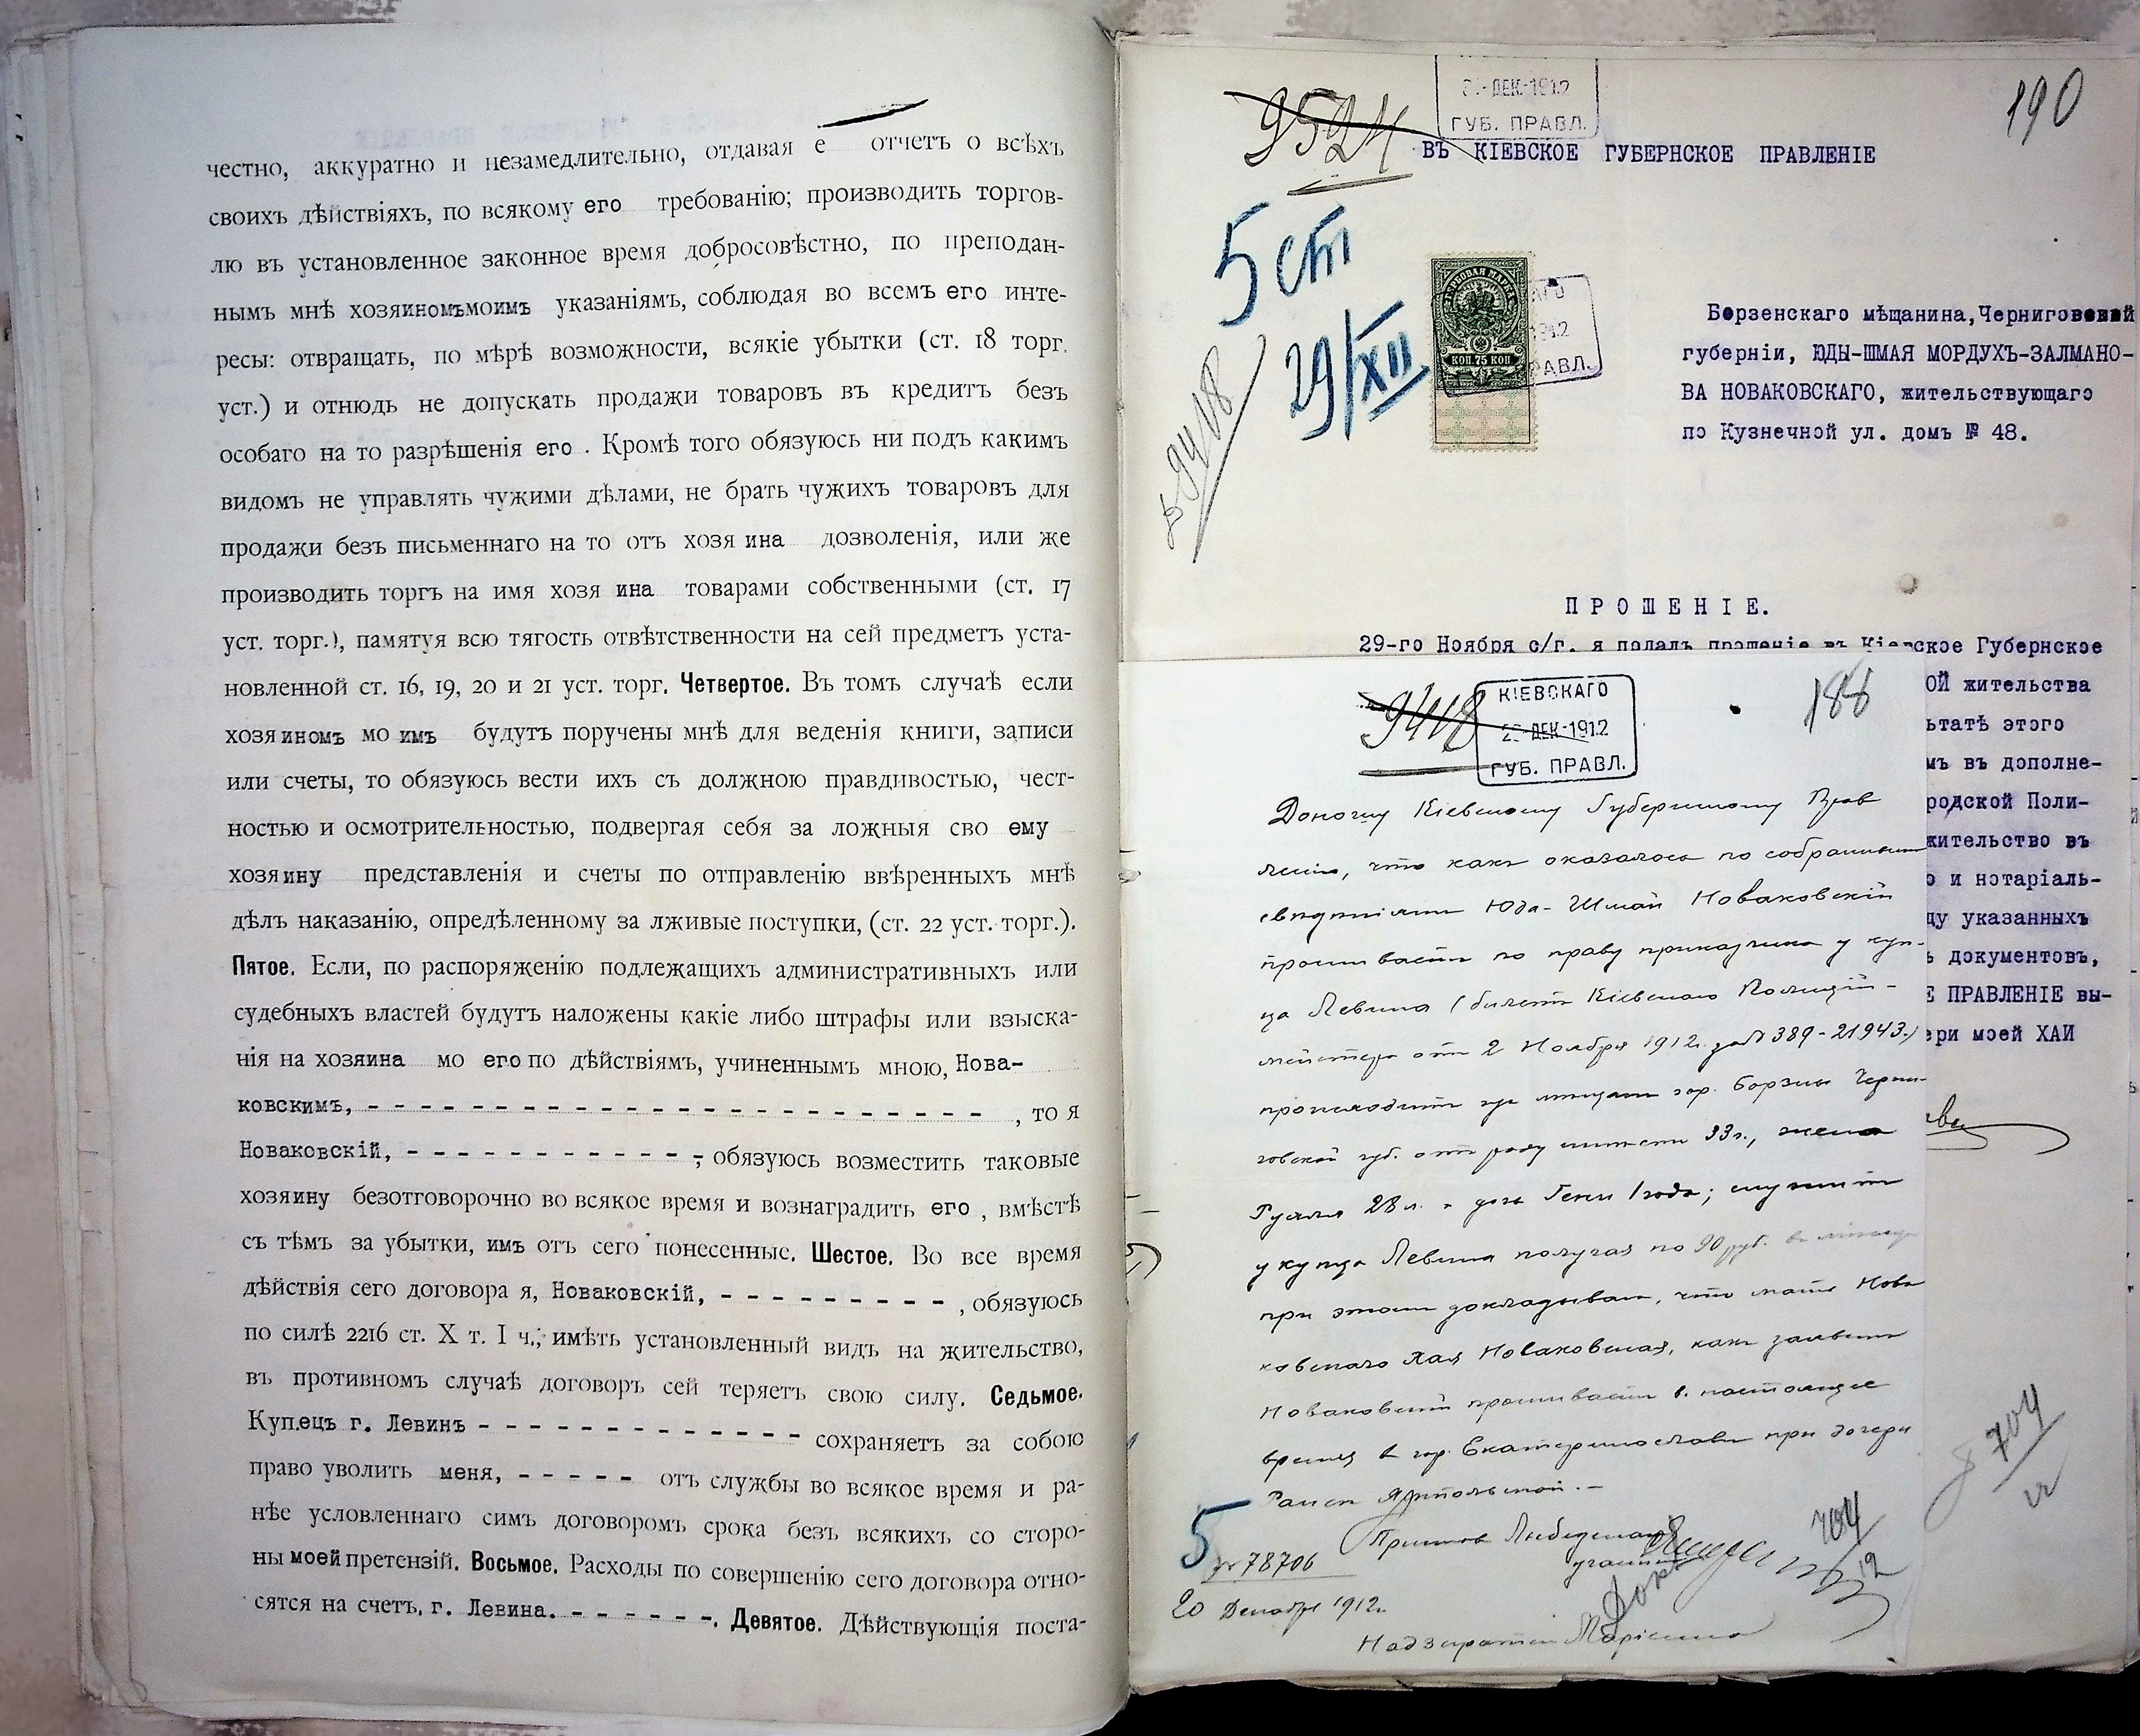 честно, аккуратно и незамедлительно, отдавая е отчетъ о всѣхъ
своихъ дѣйствіяхъ, по всякому его требованію; производить торгов-
лю въ установленное законное время добросовѣстно, по преподан-
нымъ мнѣ хозяиномъ моимъ указаніямъ, соблюдая во всемъ его инте-
ресы: отвращать, по мѣрѣ возможности, всякіе убытки (ст. 18 торг.
уст.) и отнюдь не допускать продажи товаровъ въ кредитъ безъ
особаго на то разрѣшенія его. Кромѣ того обязуюсь ни подъ какимъ
видомъ не управлять чужими дѣлами, не брать чужихъ товаровъ для
продажи безъ письменнаго на то отъ хозяина дозволенія, или же
производить торгъ на имя хозяина товарами собственными (ст. 17
уст. торг.), памятуя всю тягость отвѣтственности на сей предметъ уста-
новленной ст. 16, 19, 20 и 21 уст. торг. Четвертое. Въ томъ случаѣ если
хозяиномъ моимъ будутъ поручены мнѣ для веденія книги, записи
или счеты, то обязуюсь вести ихъ съ должною правдивостью, чест-
ностью и осмотрительностью, подвергая себя за ложныя своему
хозяину представленія и счеты по отправленію ввѣренныхъ мнѣ
дѣлъ наказанію, опредѣленному за лживые поступки, (ст. 22 уст. торг.).
Пятое. Если, по распоряженію подлежащихъ административныхъ или
судебныхъ властей будутъ наложены какіе либо штрафы или взыска-
нія на хозяина моего по дѣйствіямъ, учиненнымъ мною, Нова-
ковскимъ, - - - - - - - - - - - - - - - - - - - - - - - - , то я
Новаковскій, - - - - - - - - - - - - ; обязуюсь возместить таковые
хозяину безотговорочно во всякое время и вознаградить его, вмѣстѣ
съ тѣмъ за убытки, имъ отъ сего понесенные. Шестое. Во все время
дѣйствія сего договора я, Новаковскій, - - - - - - - - - , обязуюсь
по силѣ 2216 ст. X т. I ч., имѣть установленный видъ на жительство,
въ противномъ случаѣ договоръ сей теряетъ свою силу. Седьмое.
Купецъ г. Левинъ - - - - - - - - - - - - - сохраняетъ за собою
право уволить меня, - - - - - отъ службы во всякое время и ра-
нѣе условленнаго симъ договоромъ срока безъ всякихъ со сторо-
ны моей претензій. Восьмое. Расходы по совершенію сего договора отно-
сятся на счетъ, г. Левина. - - - - - - . Девятое. Дѣйствующія поста-
190
9524
ДЕК 1912
ГУБ. ПРАВЛ.
ВЪ КІЕВСКОЕ ГУБЕРНСКОЕ ПРАВЛЕНІЕ
5 ст
29/XII
9418
КОП. 75 КОП
1912
АВЛ.
Борзенскаго мѣщанина, Черниговской
губерніи, ЮДЫ-ШМАЯ МОРДУХЪ-ЗАЛМАНО-
ВА НОВАКОВСКАГО, жительствующаго
по Кузнечной ул. домъ № 48.
ПРОШЕНІЕ.
29-го Ноября с/г. я подалъ прошеніе въ Кіевское Губернское
ОЙ жительства
ьтатѣ этого
мъ въ дополне-
родской Поли-
жительство въ
о и нотаріаль-
ду указанныхъ
ъ документовъ,
Е ПРАВЛЕНІЕ вы-
ери моей ХАИ
188
9418
КІЕВСКАГО
ДЕК 1912
ГУБ. ПРАВЛ.
Доношу Кіевскому Губернскому Прав
ленію, что какъ оказалось по собраннымъ
свѣдѣніямъ Юда-Шмай Новаковскій
проживаетъ по праву приказчика у куп-
ца Левина (билетъ Кіевскаго Полицій-
мейстера отъ 2 Ноября 1912 г. за № 389-21943.)
происходитъ изъ мѣщанъ гор. Борзны Черни-
говской губ. отъ роду имѣетъ 33 г., жена
28 л. и дочь Геня 1 года; служитъ
у купца Левина получая по 90 руб. въ мѣсяцъ
при этомъ докладываю, что мать Нова
ковскаго Хая Новаковская, какъ заявилъ
Новаковскій проживаетъ въ настоящее
время въ гор. Екатеринославѣ при дочери
Приставъ Лыбедскаго
участка
5
№ 78706
20 Декабря 1912 г.
Надзиратель
704
12
704